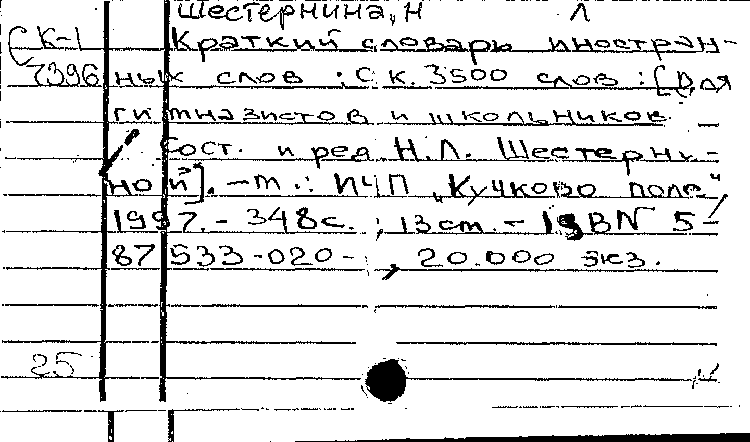 Шестернина, Н Л
СК-1 Краткий словарь иностран-
7396 ных слов : Ск. 3500 слов : [Для
гимназистов и школьников
Сост. и ред. Н.Л. Шестерни-
ной]. - м.: ИЧП „Кучково поле“,
1997. - 348с. ; 13см. - ISBN 5-
87533-020- , 20.000 экз.
25